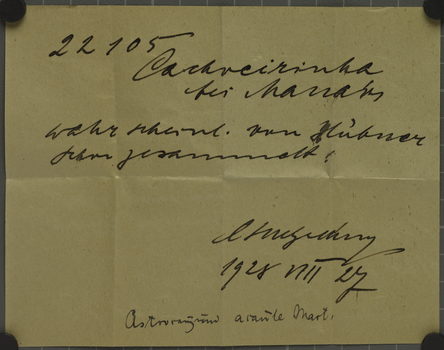 22105
Cachoeirinha
bei Manaos
wahrscheinl. von Hübner
schon gesammelt!
1928 VIII 27
acaule Mart.